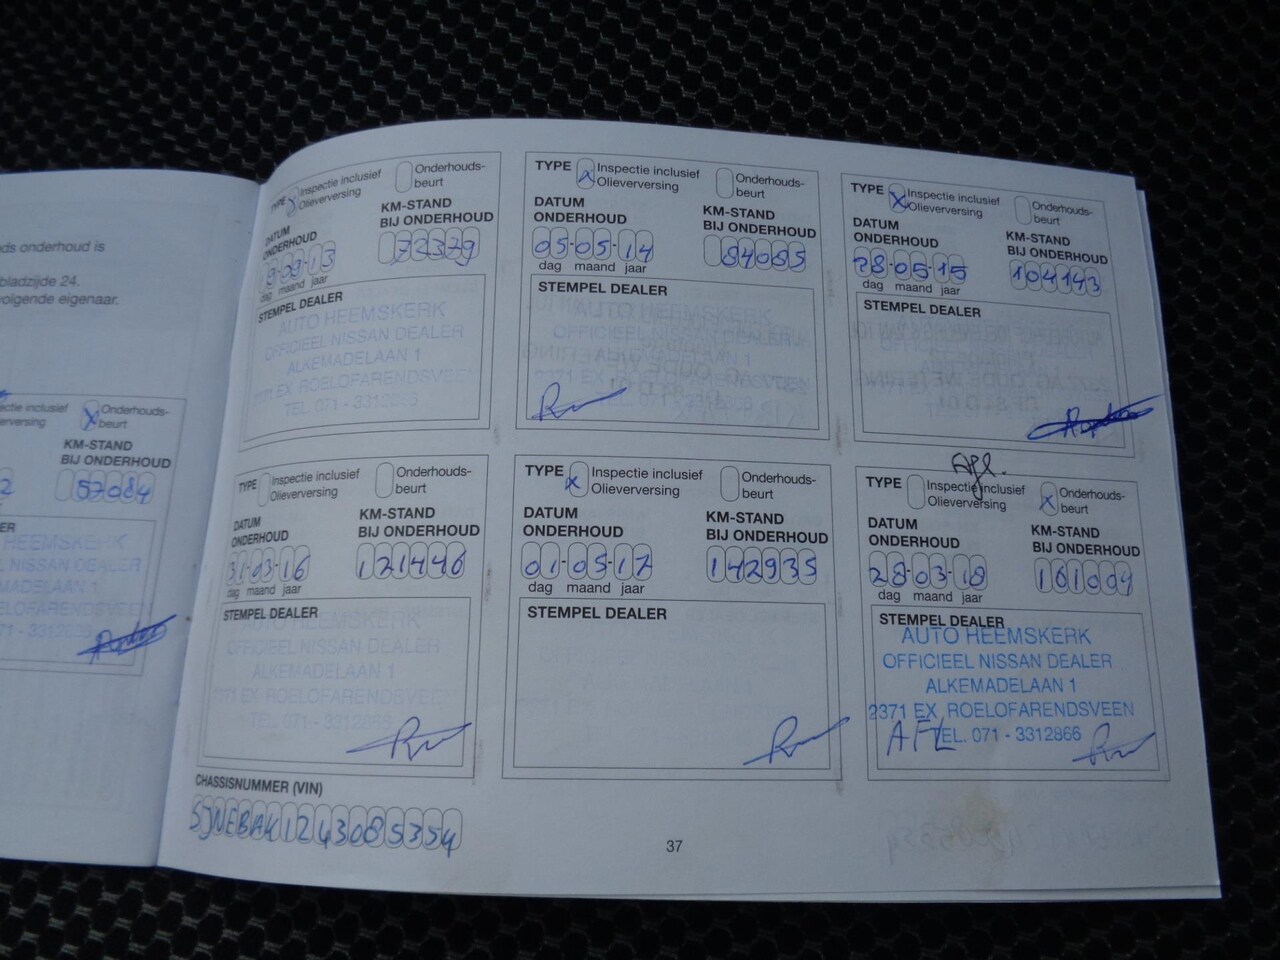 ds onderhoud is
bladzijde 24.
volgende eigenaar.
ectie inclusief
everversing
X Onderhouds-
beurt
KM-STAND
BIJ ONDERHOUD
2
57084
ER
HEEMSKERK
NISSAN DEALER
071 - 3312866
TYPE X Inspectie inclusief
Olieverversing
Onderhouds-
beurt
DATUM
ONDERHOUD
KM-STAND
BIJ ONDERHOUD
9-09-13
72379
dag maand jaar
STEMPEL DEALER
AUTO HEEMSKERK
OFFICIEEL NISSAN DEALER
ALKEMADELAAN 1
2371 EX ROELOFARENDSVEEN
TEL. 071 - 3312866
TYPE X Inspectie inclusief
Olieverversing
Onderhouds-
beurt
DATUM
ONDERHOUD
KM-STAND
BIJ ONDERHOUD
05-05-14
84085
dag maand jaar
STEMPEL DEALER
AUTO HEEMSKERK
OFFICIEEL NISSAN DEALER
TYPE X Inspectie inclusief
Olieverversing
Onderhouds-
beurt
DATUM
ONDERHOUD
KM-STAND
BIJ ONDERHOUD
28-05-15
104143
dag maand jaar
STEMPEL DEALER
TYPE Inspectie inclusief
Olieverversing
Onderhouds-
beurt
DATUM
ONDERHOUD
KM-STAND
BIJ ONDERHOUD
31-03-16
121446
dag maand jaar
STEMPEL DEALER
AUTO HEEMSKERK
OFFICIEEL NISSAN DEALER
ALKEMADELAAN 1
2371 EX ROELOFARENDSVEEN
TEL. 071 - 3312866
TYPE X Inspectie inclusief
Olieverversing
Onderhouds-
beurt
DATUM
ONDERHOUD
KM-STAND
BIJ ONDERHOUD
01-05-17
142935
dag maand jaar
STEMPEL DEALER
Afl.
TYPE Inspectie inclusief
Olieverversing
X Onderhouds-
beurt
DATUM
ONDERHOUD
KM-STAND
BIJ ONDERHOUD
28-03-18
161009
dag maand jaar
STEMPEL DEALER
AUTO HEEMSKERK
OFFICIEEL NISSAN DEALER
ALKEMADELAAN 1
2371 EX ROELOFARENDSVEEN
AFL TEL. 071 - 3312866
CHASSISNUMMER (VIN)
SJNEBAK12U3085354
37